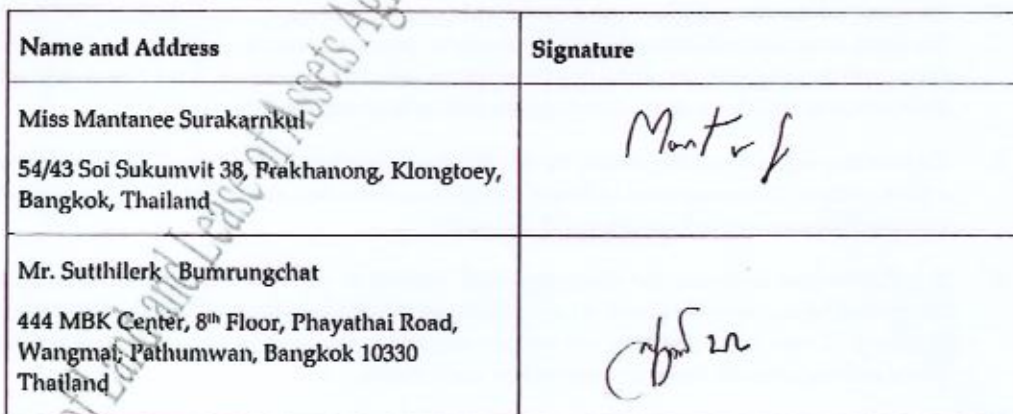 Name and Address
Signature
Miss Mantanee Surakarnkul
54/43 Soi Sukumvit 38, Prakhanong, Klongtoey,
Bangkok, Thailand
Mr. Sutthilerk Bumrungchat
444 MBK Center, 8th Floor, Phayathai Road,
Wangmai, Pathumwan, Bangkok 10330
Thailand
of Land and Lease of Assets